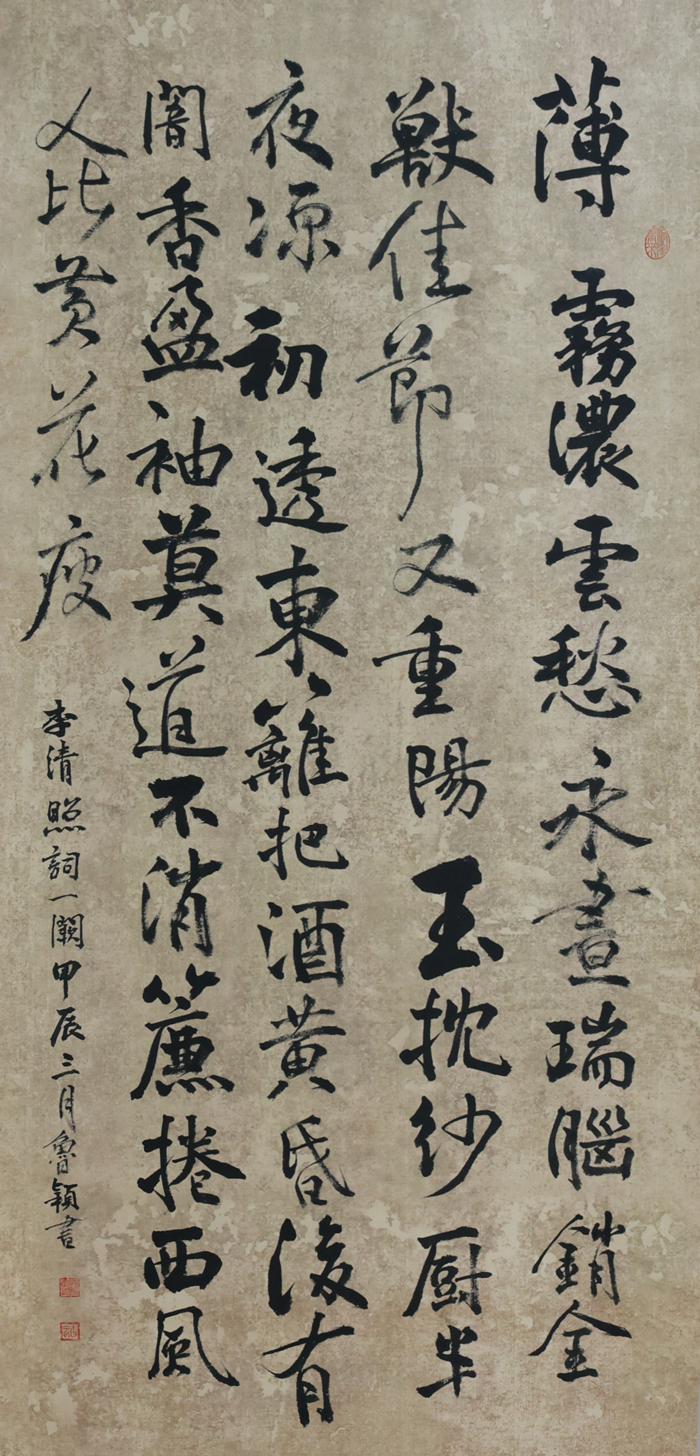 薄霧濃雲愁永晝瑞腦銷金
獸佳節又重陽玉枕紗厨半
夜涼初透東籬把酒黄昏後有
闇香盈袖莫道不消簾捲西風
人比黄花瘦
李清照詞一闋甲辰三月魯穎書